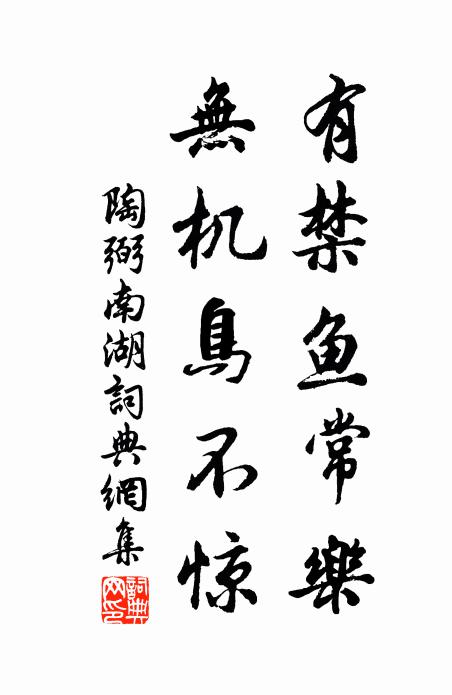 有禁鱼常樂
無机鳥不惊
陶弼南湖詞典網集
詞典网印